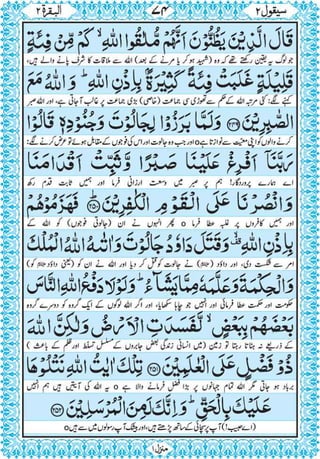 سیقول ۲ ۷۴ البقرة ۲
قَالَ الَّذِيْنَ يَظُنُّوْنَ اَنَّهُمْ مُّلٰقُوا اللّٰهِ ۙ كَمْ مِّنْ فِئَةٍ
جو لوگ یہ یقین رکھتے تھے کہ وہ (شہید ہو کر یا مرنے کے بعد) اللہ سے ملاقات کا شرف پانے والے ہیں،
قَلِيْلَةٍ غَلَبَتْ فِئَةً كَثِيْرَةًۢ بِاِذْنِ اللّٰهِ ؕ وَ اللّٰهُ مَعَ
کہنے لگے: کئی مرتبہ اللہ کے حکم سے تھوڑی سی جماعت (خاصی) بڑی جماعت پر غالب آ جاتی ہے، اور اللہ صبر
الصّٰبِرِيْنَ ﴿۲۴۹﴾ وَ لَمَّا بَرَزُوْا لِجَالُوْتَ وَ جُنُوْدِهٖ قَالُوْا
کرنے والوں کو اپنی معیت سے نوازتا ہے o اور جب وہ جالوت اور اس کی فوجوں کے مقابل ہوئے تو عرض کرنے لگے:
رَبَّنَاۤ اَفْرِغْ عَلَيْنَا صَبْرًا وَّ ثَبِّتْ اَقْدَامَنَا
اے ہمارے پروردگار! ہم پر صبر میں وسعت ارزانی فرما اور ہمیں ثابت قدم رکھ
وَ انْصُرْنَا عَلَى الْقَوْمِ الْكٰفِرِيْنَ ﴿۲۵۰﴾ فَهَزَمُوْهُمْ
اور ہمیں کافروں پر غلبہ عطا فرما o پھر انہوں نے ان (جالوتی فوجوں) کو اللہ کے
بِاِذْنِ اللّٰهِ ۙ وَ قَتَلَ دَاوٗدُ جَالُوْتَ وَ اٰتٰىهُ اللّٰهُ الْمُلْكَ
امر سے شکست دی، اور داؤد (علیہ السلام) نے جالوت کو قتل کر دیا اور اللہ نے ان کو (یعنی داؤد علیہ السلام کو)
وَ الْحِكْمَةَ وَ عَلَّمَهٗ مِمَّا يَشَآءُ ؕ وَ لَوْ لَا دَفْعُ اللّٰهِ النَّاسَ
حکومت اور حکمت عطا فرمائی اور انہیں جو چاہا سکھایا، اور اگر اللہ لوگوں کے ایک گروہ کو دوسرے گروہ
بَعْضَهُمْ بِبَعْضٍ ۙ لَّفَسَدَتِ الْاَرْضُ وَ لٰكِنَّ اللّٰهَ
کے ذریعے نہ ہٹاتا رہتا تو زمین (میں انسانی زندگی بعض جابروں کے مسلسل تسلط اور ظلم کے باعث)
ذُوْ فَضْلٍ عَلَى الْعٰلَمِيْنَ ﴿۲۵۱﴾ تِلْكَ اٰيٰتُ اللّٰهِ نَتْلُوْهَا
برباد ہو جاتی مگر اللہ تمام جہانوں پر بڑا فضل فرمانے والا ہے o یہ اللہ کی آیتیں ہیں ہم انہیں
عَلَيْكَ بِالْحَقِّ ؕ وَ اِنَّكَ لَمِنَ الْمُرْسَلِيْنَ ﴿۲۵۲﴾
(اے حبیب!) آپ پر سچائی کے ساتھ پڑھتے ہیں، اور بیشک آپ رسولوں میں سے ہیں o
منزل ۱